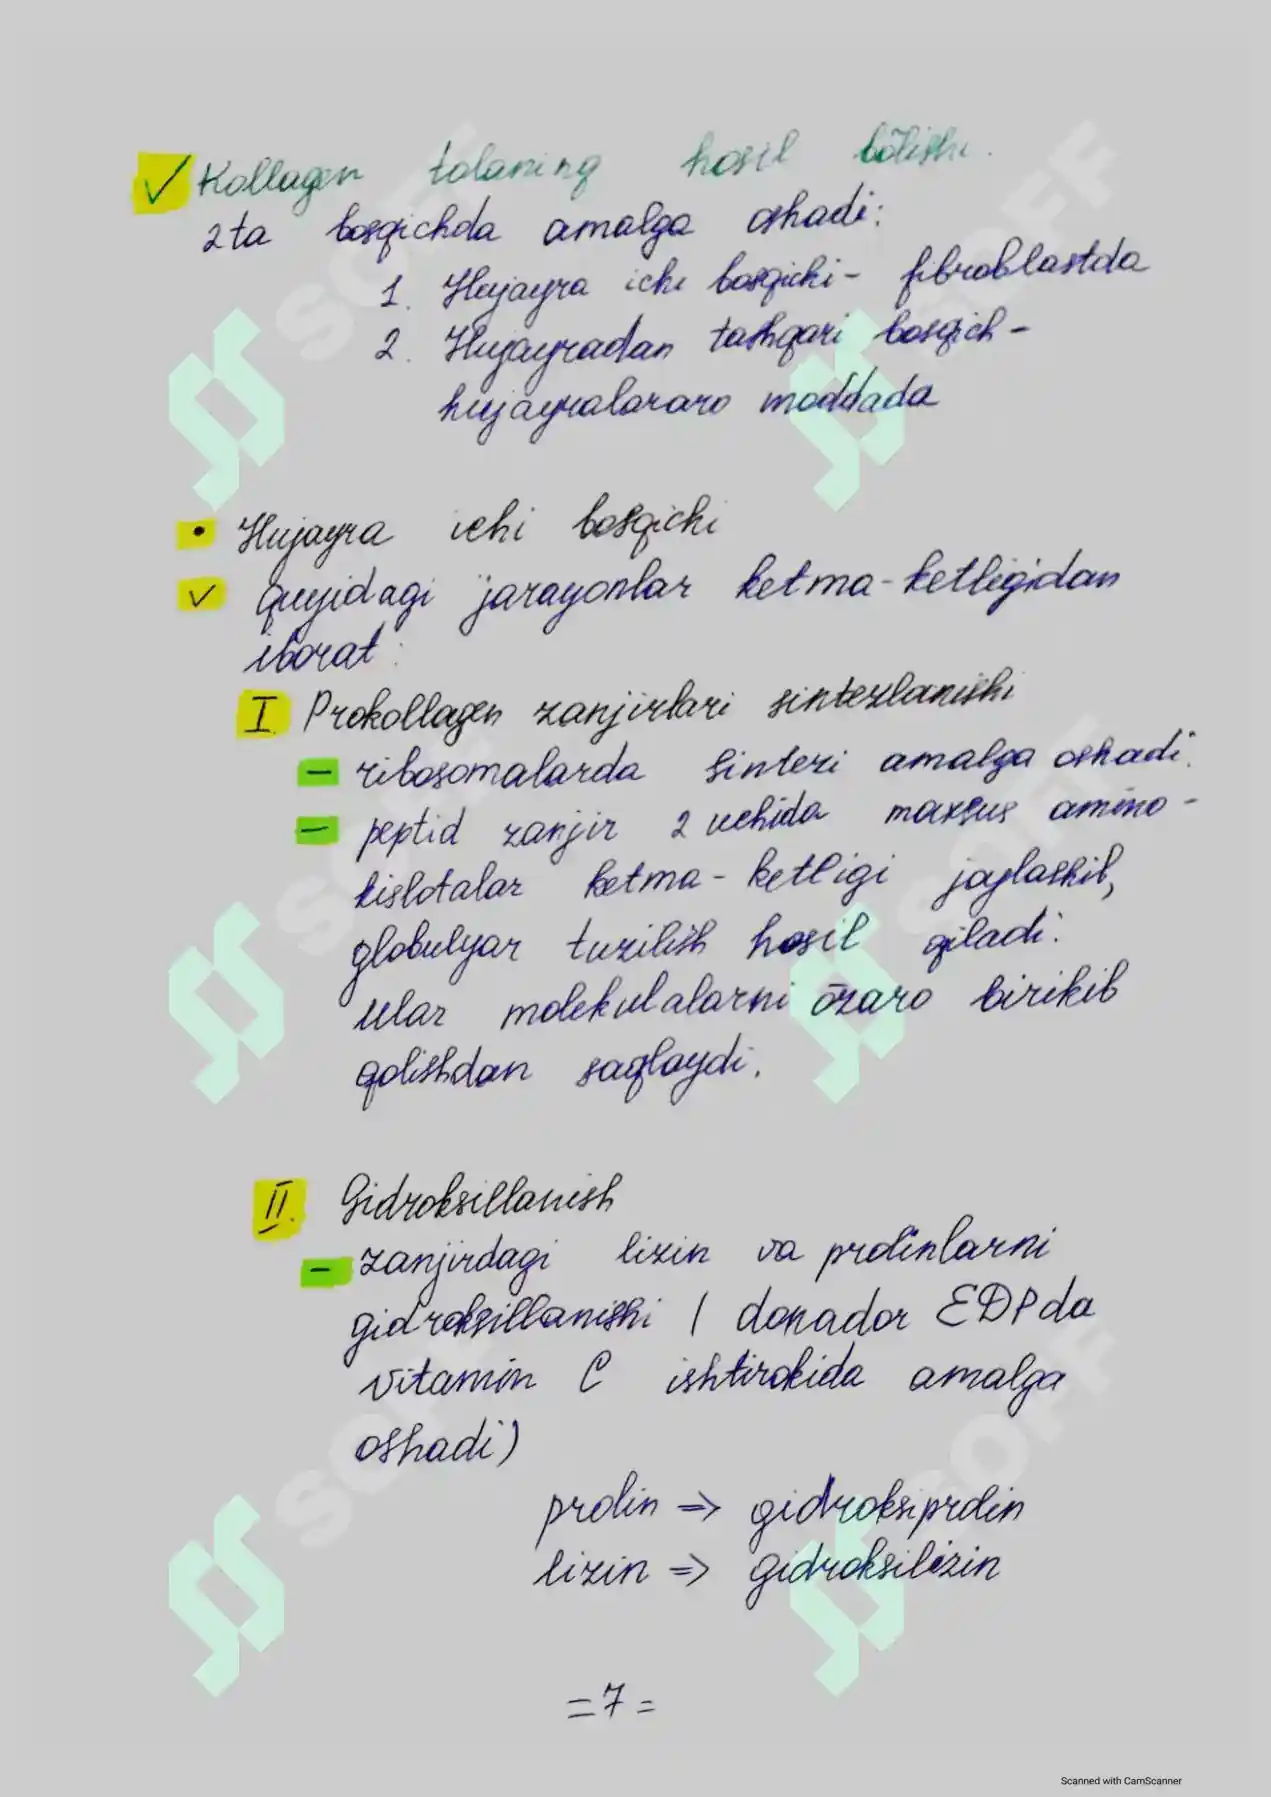 ✓ Kollagen tolaning hosil bōlishi.
2ta bosqichda amalga oshadi:
1. Hujayra ichi bosqichi - fibroblastda
2. Hujayradan tashqari bosqich -
hujayralararo moddada
• Hujayra ichi bosqichi
✓ quyidagi jarayonlar ketma-ketligidan
iborat:
I. Prokollagen zanjirlari sintezlanishi
- ribosomalarda sintezi amalga oshadi.
- peptid zanjir 2 uchida maxsus amino-
kislotalar ketma-ketligi joylashib,
globulyar tuzilish hosil qiladi.
Ular molekulalarni ōzaro birikib
qolishdan saqlaydi.
II. Gidroksillanish
- zanjirdagi lizin va prolinlarni
gidroksillanishi ( donador EDPda
vitamin C ishtirokida amalga
oshadi)
prolin => gidroksiprolin
lizin => gidroksilizin
= 7 =
SOFF
SOFF
SOFF
SOFF
SOFF
SOFF
Scanned with CamScanner